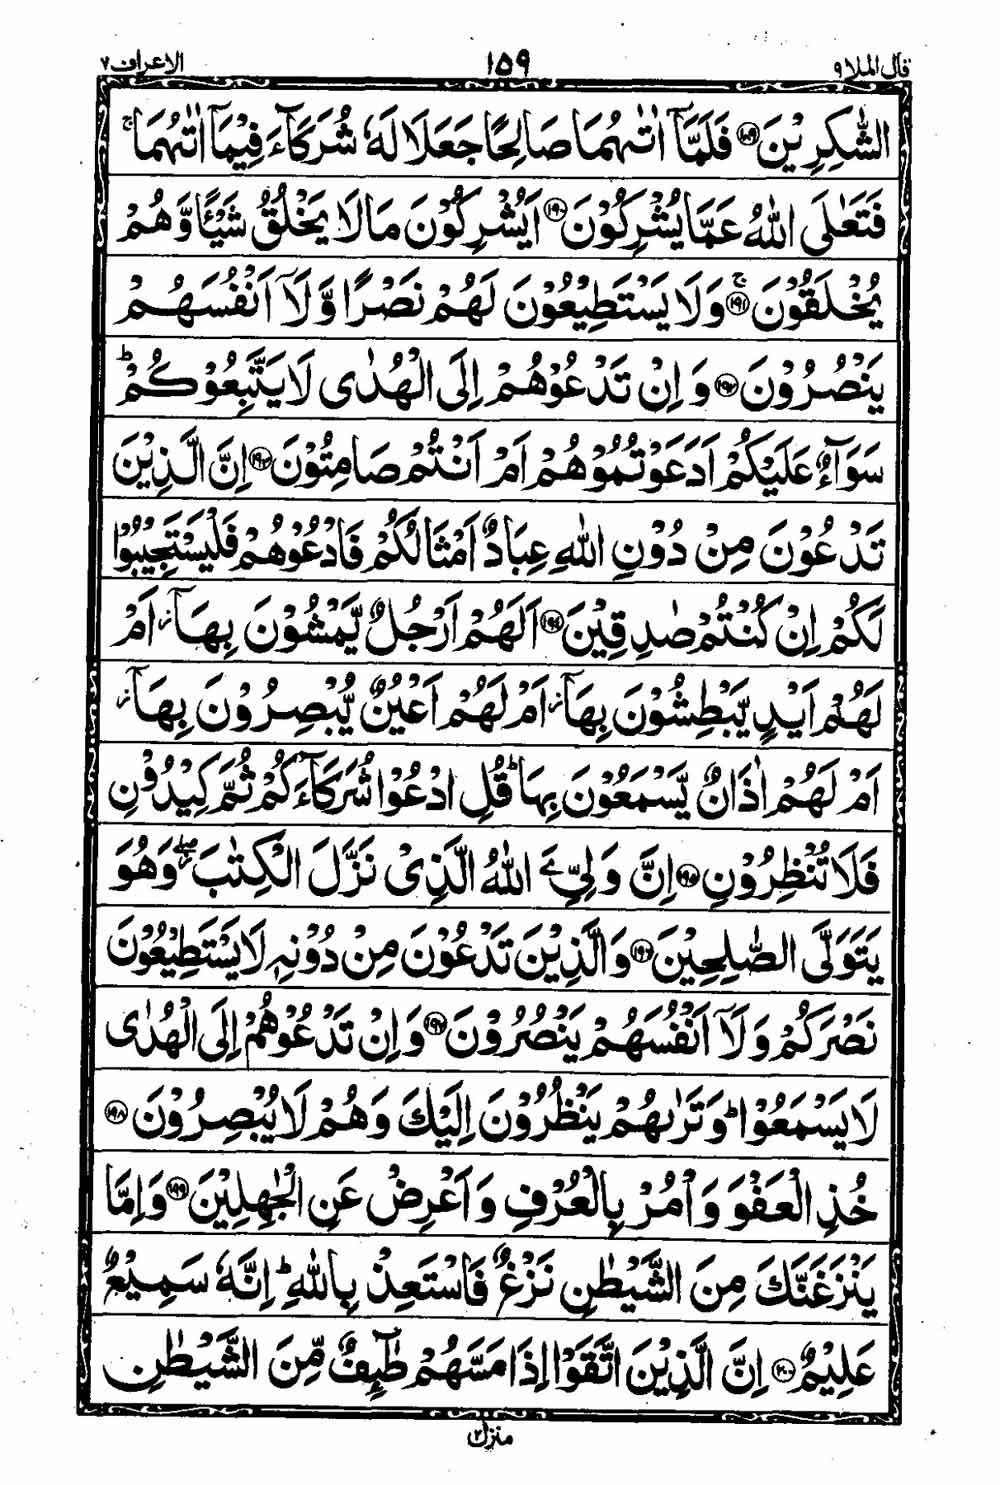 قال الملا ٩ ١٥٩ الاعراف ٧
الشّٰكِرِيْنَ ﴿١٨٩﴾ فَلَمَّاۤ اٰتٰىهُمَا صَالِحًا جَعَلَا لَهٗ شُرَكَآءَ فِيْمَاۤ اٰتٰىهُمَاۚ
فَتَعٰلَى اللّٰهُ عَمَّا يُشْرِكُوْنَ ﴿١٩٠﴾ اَيُشْرِكُوْنَ مَا لَا يَخْلُقُ شَيْـًٔا وَّهُمْ
يُخْلَقُوْنَ ﴿١٩١﴾ۚ وَلَا يَسْتَطِيْعُوْنَ لَهُمْ نَصْرًا وَّلَاۤ اَنْفُسَهُمْ
يَنْصُرُوْنَ ﴿١٩٢﴾ وَاِنْ تَدْعُوْهُمْ اِلَى الْهُدٰى لَا يَتَّبِعُوْكُمْؕ
سَوَآءٌ عَلَيْكُمْ اَدَعَوْتُمُوْهُمْ اَمْ اَنْتُمْ صَامِتُوْنَ ﴿١٩٣﴾ اِنَّ الَّذِيْنَ
تَدْعُوْنَ مِنْ دُوْنِ اللّٰهِ عِبَادٌ اَمْثَالُكُمْ فَادْعُوْهُمْ فَلْيَسْتَجِيْبُوْا
لَكُمْ اِنْ كُنْتُمْ صٰدِقِيْنَ ﴿١٩٤﴾ اَلَهُمْ اَرْجُلٌ يَّمْشُوْنَ بِهَاۤؗ اَمْ
لَهُمْ اَيْدٍ يَّبْطِشُوْنَ بِهَاۤؗ اَمْ لَهُمْ اَعْيُنٌ يُّبْصِرُوْنَ بِهَاۤؗ
اَمْ لَهُمْ اٰذَانٌ يَّسْمَعُوْنَ بِهَاؕ قُلِ ادْعُوْا شُرَكَآءَكُمْ ثُمَّ كِيْدُوْنِ
فَلَا تُنْظِرُوْنِ ﴿١٩٥﴾ اِنَّ وَلِيِّۦَ اللّٰهُ الَّذِيْ نَزَّلَ الْكِتٰبَۖ وَهُوَ
يَتَوَلَّى الصّٰلِحِيْنَ ﴿١٩٦﴾ وَالَّذِيْنَ تَدْعُوْنَ مِنْ دُوْنِهٖ لَا يَسْتَطِيْعُوْنَ
نَصْرَكُمْ وَلَاۤ اَنْفُسَهُمْ يَنْصُرُوْنَ ﴿١٩٧﴾ وَاِنْ تَدْعُوْهُمْ اِلَى الْهُدٰى
لَا يَسْمَعُوْاؕ وَتَرٰىهُمْ يَنْظُرُوْنَ اِلَيْكَ وَهُمْ لَا يُبْصِرُوْنَ ﴿١٩٨﴾
خُذِ الْعَفْوَ وَاْمُرْ بِالْعُرْفِ وَاَعْرِضْ عَنِ الْجٰهِلِيْنَ ﴿١٩٩﴾ وَاِمَّا
يَنْزَغَنَّكَ مِنَ الشَّيْطٰنِ نَزْغٌ فَاسْتَعِذْ بِاللّٰهِؕ اِنَّهٗ سَمِيْعٌ
عَلِيْمٌ ﴿٢٠٠﴾ اِنَّ الَّذِيْنَ اتَّقَوْا اِذَا مَسَّهُمْ طٰٓئِفٌ مِّنَ الشَّيْطٰنِ
منزل ٢